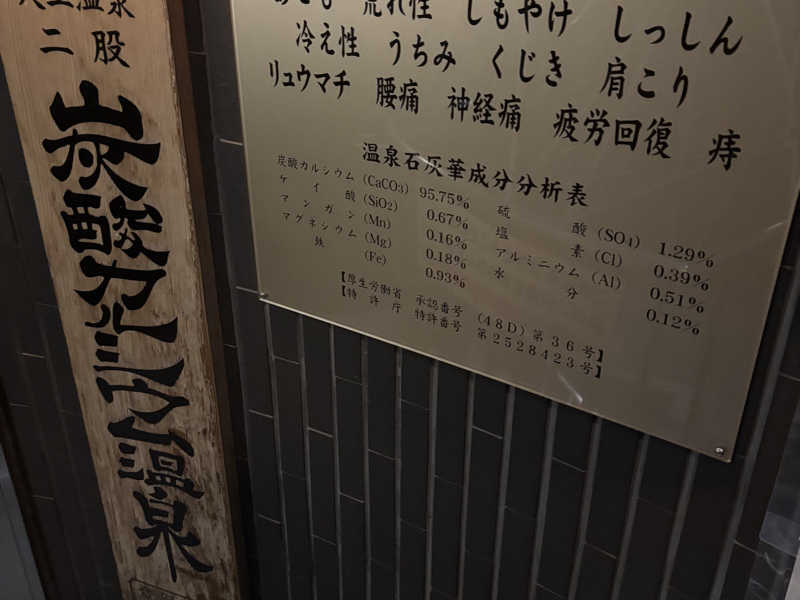 二股
炭酸カルシウム温泉
荒れ性 しもやけ しっしん
冷え性 うちみ くじき 肩こり
リュウマチ 腰痛 神経痛 疲労回復 痔
温泉石灰華成分分析表
炭酸カルシウム (CaCO3) 95.75%
ケイ酸 (SiO2) 0.67%
マンガン (Mn) 0.16%
マグネシウム (Mg) 0.18%
鉄 (Fe) 0.93%
硫酸 (SO4) 1.29%
塩素 (Cl) 0.39%
アルミニウム (Al) 0.51%
水分 0.12%
【厚生労働省 承認番号 (48D)第36号】
【特許庁 特許番号 第2528423号】